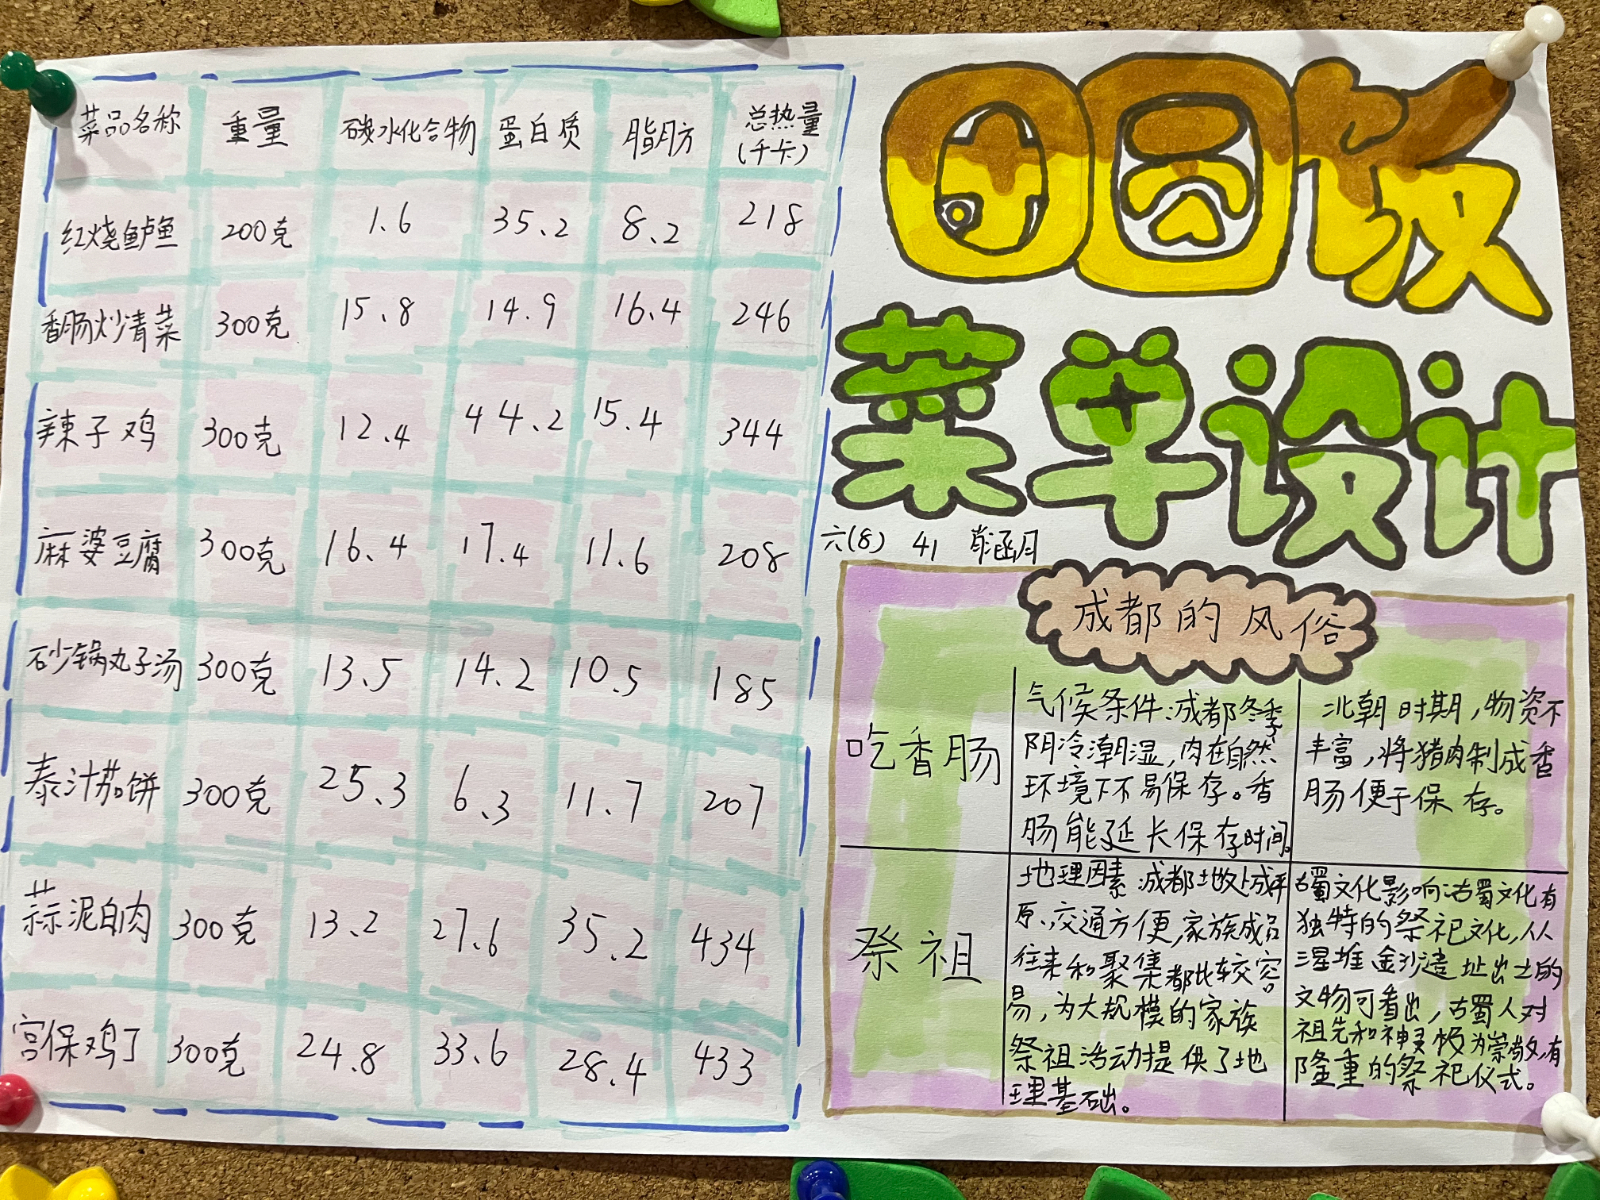 团圆饭
菜单设计
六(8) 41 肖涵月
菜品名称 重量 碳水化合物 蛋白质 脂肪 总热量(千卡)
红烧鲈鱼 200克 1.6 35.2 8.2 218
香肠炒青菜 300克 15.8 14.9 16.4 246
辣子鸡 300克 12.4 44.2 15.4 344
麻婆豆腐 300克 16.4 17.4 11.6 208
砂锅丸子汤 300克 13.5 14.2 10.5 185
泰汁茄饼 300克 25.3 6.3 11.7 207
蒜泥白肉 300克 13.2 27.6 35.2 434
宫保鸡丁 300克 24.8 33.6 28.4 433
成都的风俗
吃香肠
气候条件:成都冬季
阴冷潮湿,肉在自然
环境下不易保存。香
肠能延长保存时间。
北朝时期,物资不
丰富,将猪肉制成香
肠便于保存。
祭祖
地理因素:成都地处成平
原、交通方便,家族成员
往来和聚集都比较容
易,为大规模的家族
祭祖活动提供了地
理基础。
古蜀文化影响:古蜀文化有
独特的祭祀文化,从
三星堆金沙遗址出土的
文物可看出,古蜀人对
祖先和神灵极为崇敬,有
隆重的祭祀仪式。